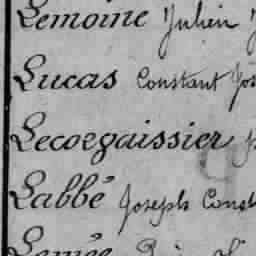 Lemoine Julien
Lucas Constant Jos
Lecoegaissier
Labbé Joseph Const
Lemée